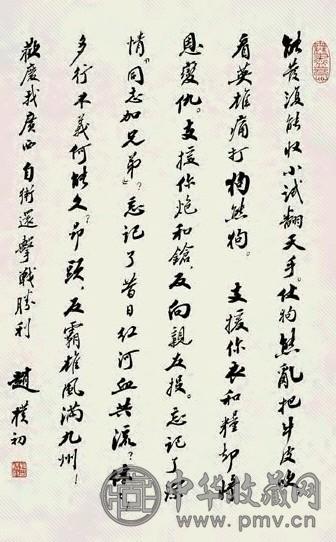 能发复能收小试翻天手。仗狗熊亂把牛皮吹
看英雄痛打狗熊狗。 支援你衣和糧却將
恩變仇。支援你炮和鎗,反向親友投。忘記了深
情“同志加兄弟”?忘記了昔日红河血共流?
多行不義何能久?昂頭,反霸雄風满九州!
歡慶我廣西自衛還擊戰勝利 趙樸初
中华收藏网
www.pmv.cn